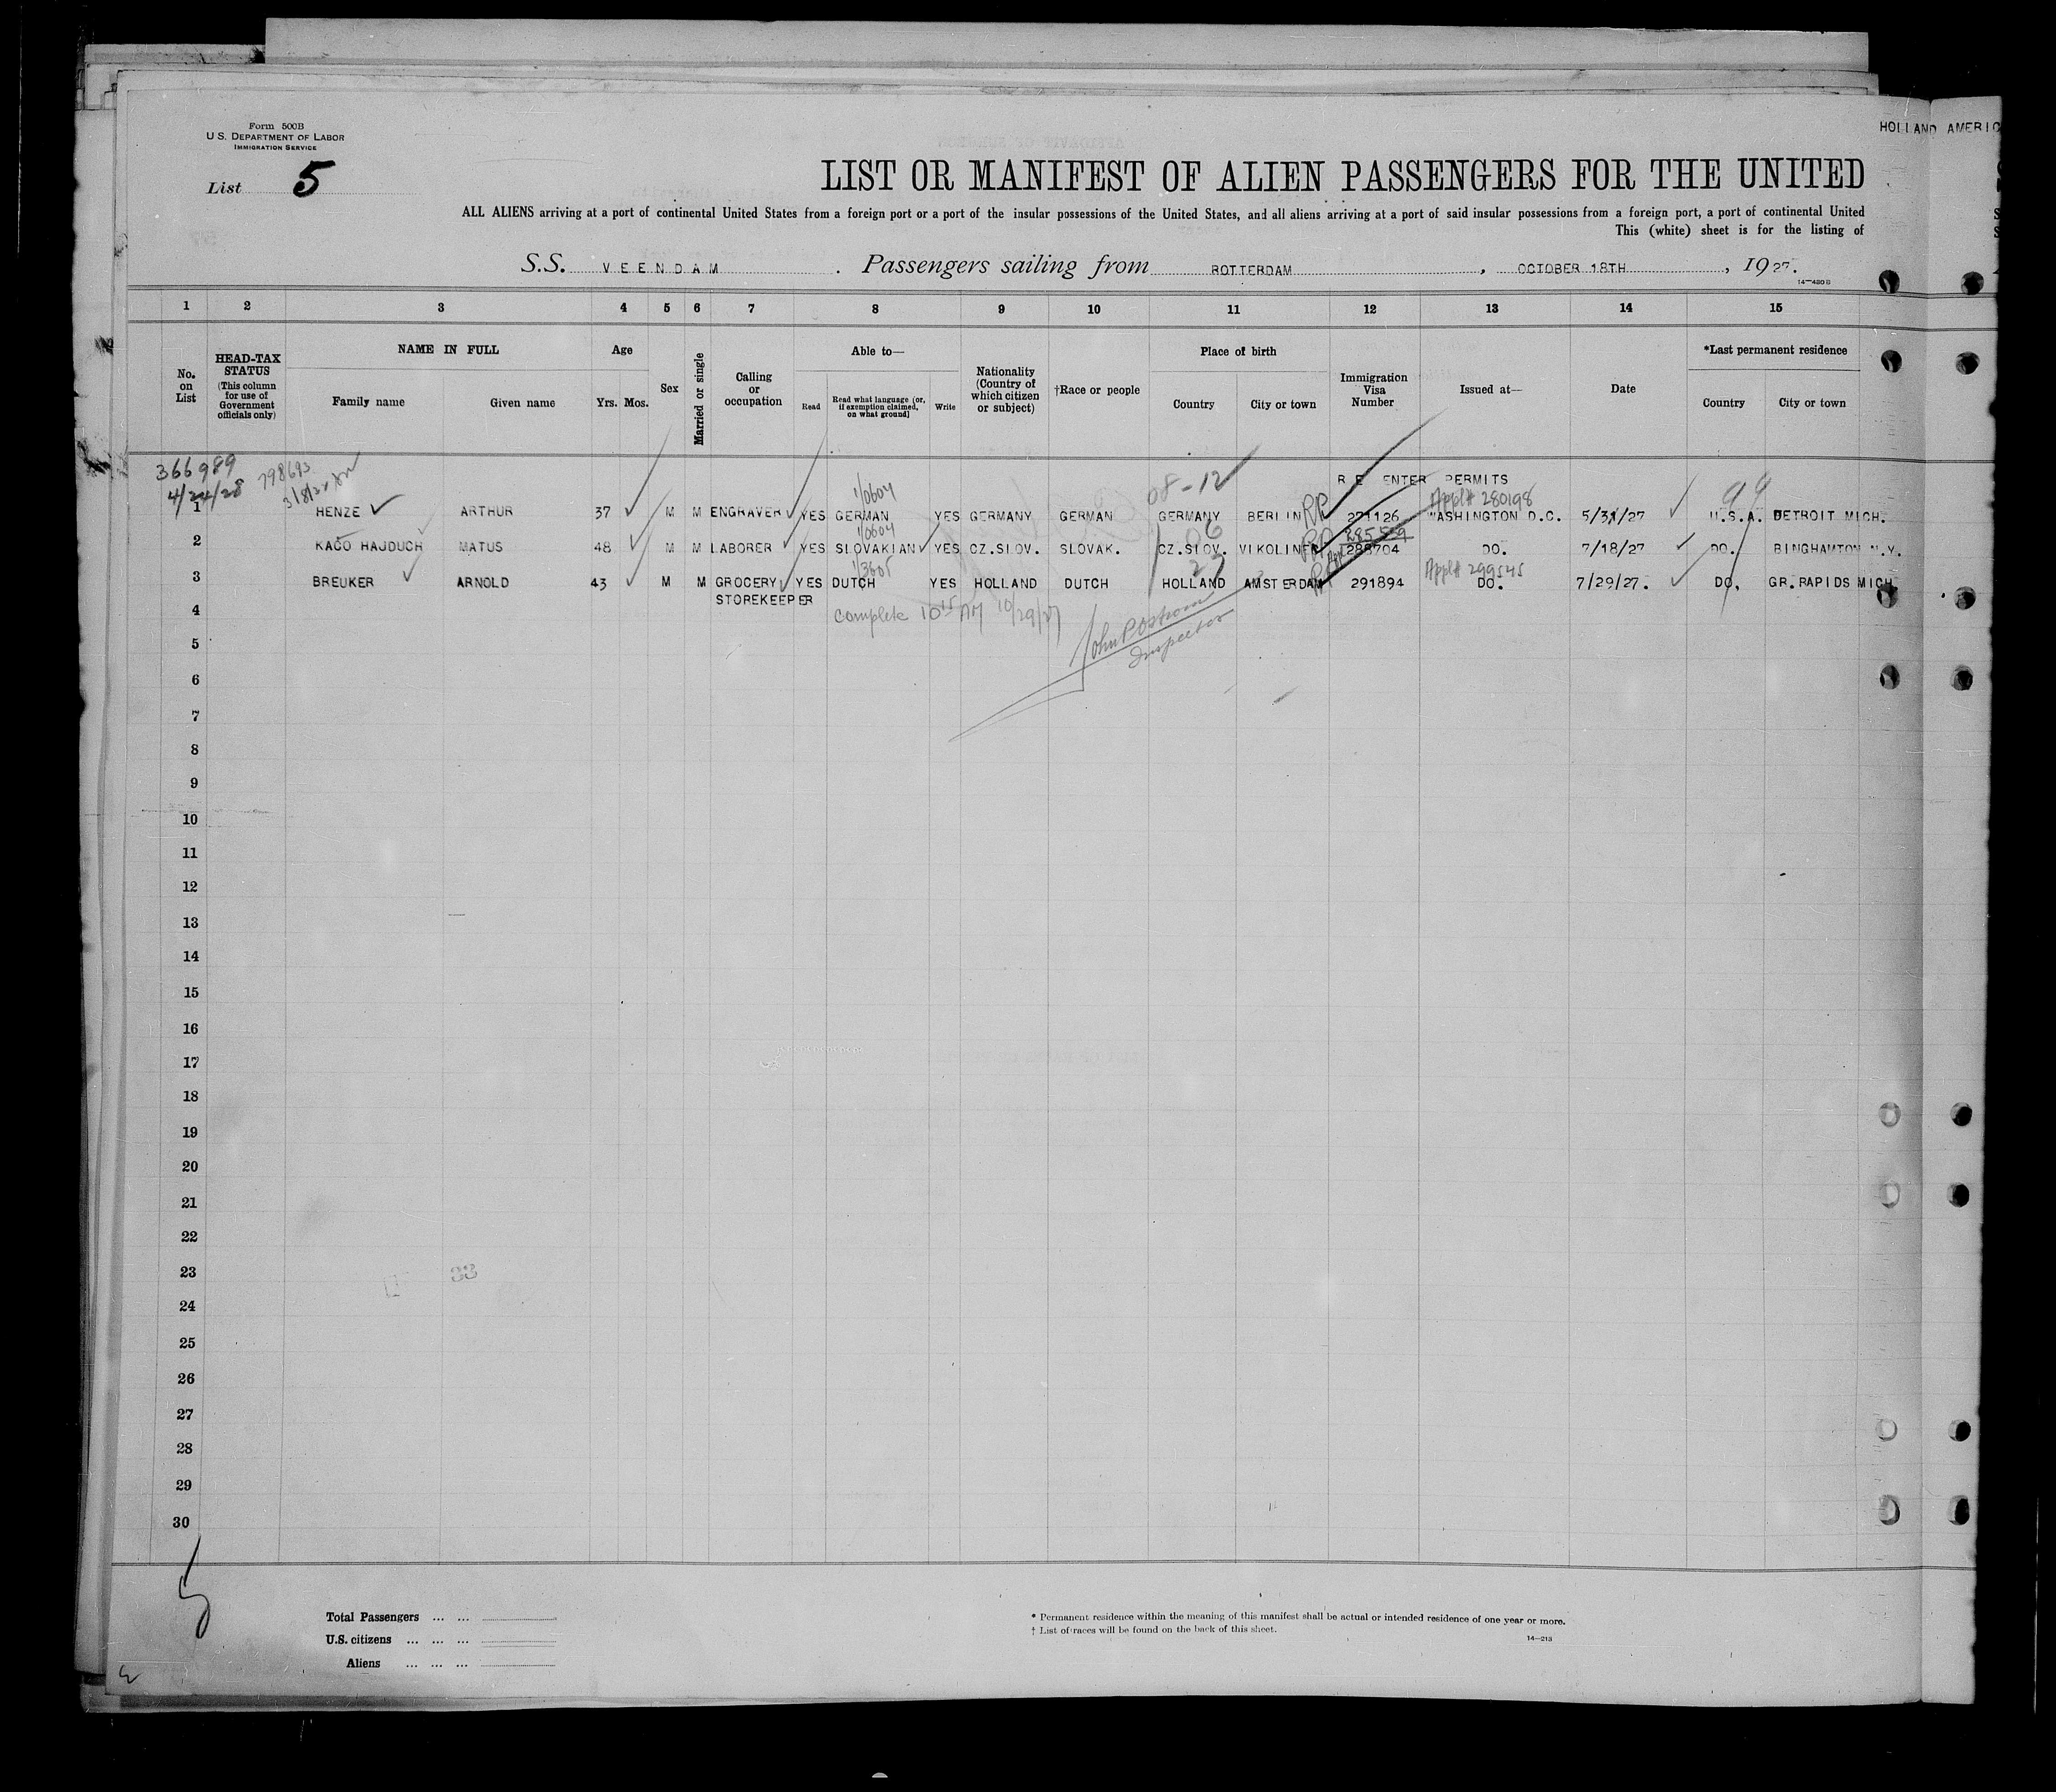 HOLLAND AMERIC
Form 500B
U.S. DEPARTMENT OF LABOR
IMMIGRATION SERVICE
List 5
LIST OR MANIFEST OF ALIEN PASSENGERS FOR THE UNITED
ALL ALIENS arriving at a port of continental United States from a foreign port or a port of the insular possessions of the United States, and all aliens arriving at a port of said insular possessions from a foreign port, a port of continental United
This (white) sheet is for the listing of
S.S. VEENDAM. Passengers sailing from ROTTERDAM, OCTOBER 18TH, 1927.
1 2 3 4 5 6 7 8 9 10 11 12 13 14 15
No. on List
HEAD-TAX STATUS (This column for use of Government officials only)
NAME IN FULL
Family name Given name
Age
Yrs. Mos.
Sex
Married or single
Calling or occupation
Able to—
Read
Read what language (or, if exemption claimed, on what ground)
Write
Nationality (Country of which citizen or subject)
†Race or people
Place of birth
Country City or town
Immigration Visa Number
Issued at—
Date
*Last permanent residence
Country City or town
366989 798693
4/24/28
08-12 RE ENTER PERMITS 99
1/0604 Appl# 280198
1 HENZE ARTHUR 37 M M ENGRAVER YES GERMAN YES GERMANY GERMAN GERMANY BERLIN RP 271126 WASHINGTON D.C. 5/31/27 U.S.A. DETROIT MICH.
1/0604 06
2 KACO HAJDUCH MATUS 48 M M LABORER YES SLOVAKIAN YES CZ.SLOV. SLOVAK. CZ.SLOV. VIKOLINEC RP 288704 DO. 7/18/27 DO. BINGHAMTON N.Y.
1/3605 27 Appl# 299545
3 BREUKER ARNOLD 43 M M GROCERY YES DUTCH YES HOLLAND DUTCH HOLLAND AMSTERDAM RP 291894 DO. 7/29/27. DO. GR.RAPIDS MICH
STOREKEEPER
4
Complete 10 15 AM 10/29/27
Inspector
5
6
7
8
9
10
11
12
13
14
15
16
17
18
19
20
21
22
23
33
24
25
26
27
28
29
30
5
Total Passengers ... ...
U.S. citizens ... ... ...
Aliens ... ... ...
* Permanent residence within the meaning of this manifest shall be actual or intended residence of one year or more.
† List of races will be found on the back of this sheet.
14—213